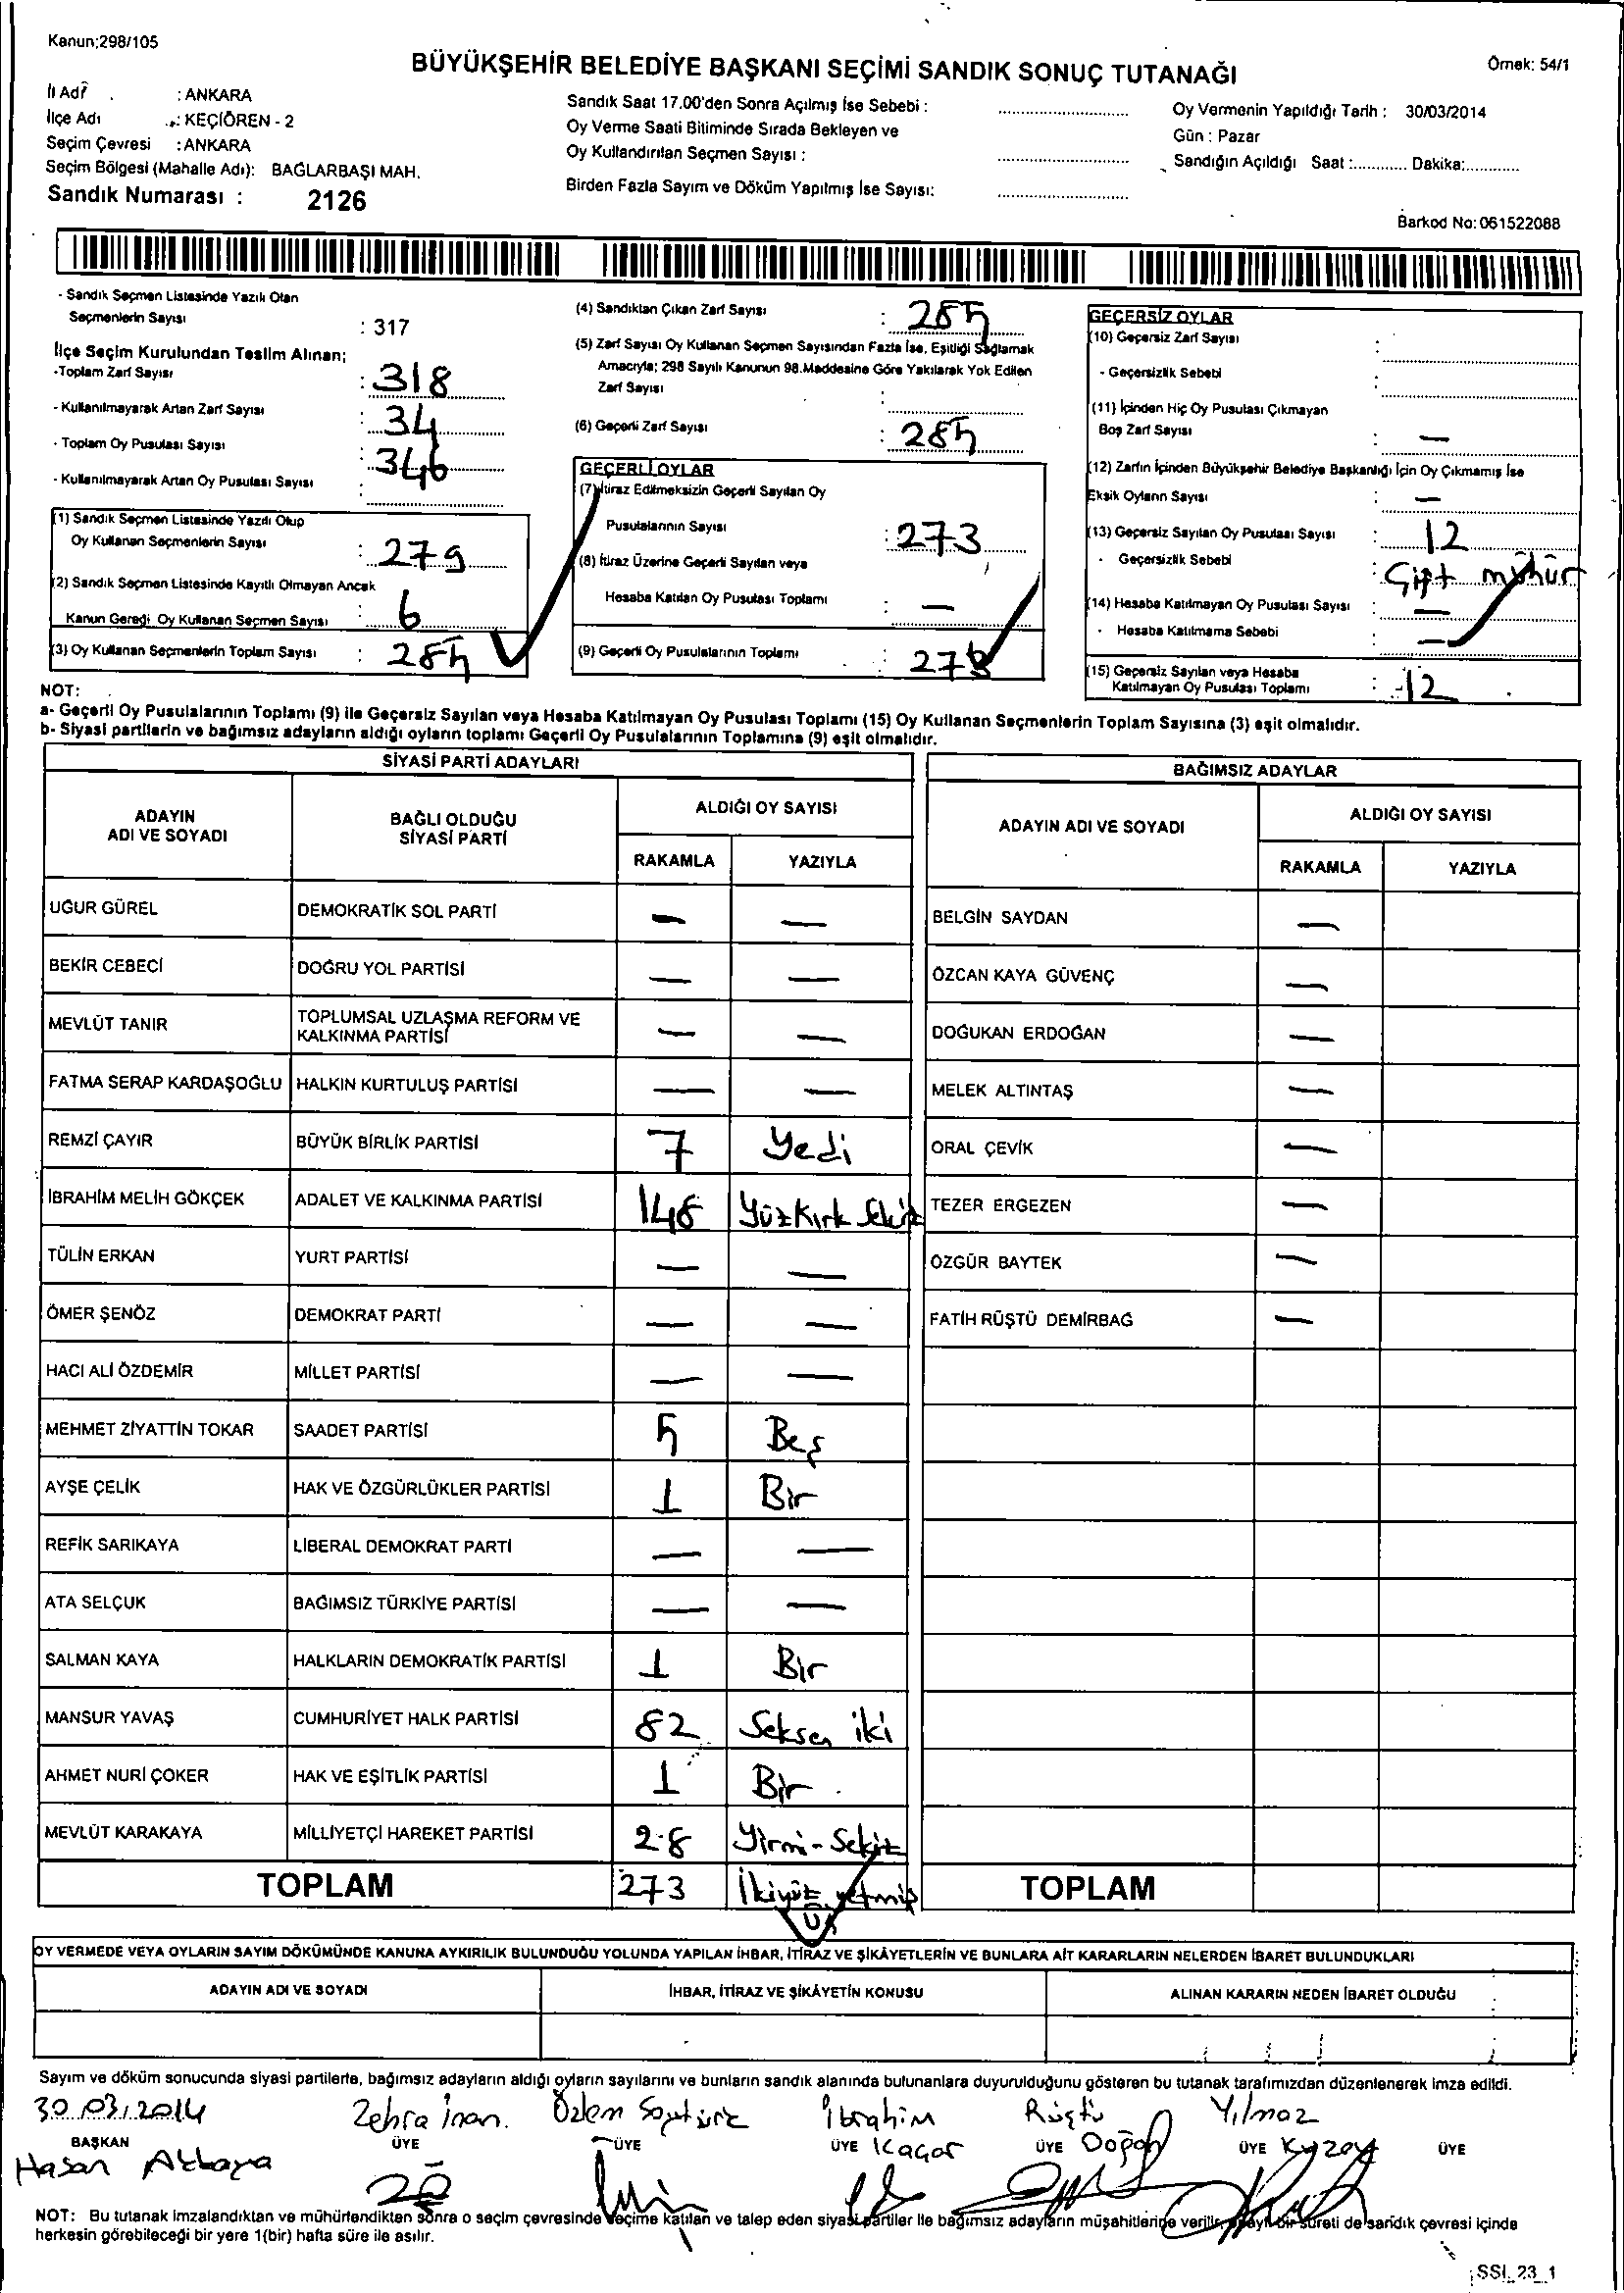 Kanun;298/105
BÜYÜKŞEHİR BELEDİYE BAŞKANI SEÇİMİ SANDIK SONUÇ TUTANAĞI
Örnek: 54/1
İl Adı : ANKARA
İlçe Adı : KEÇİÖREN - 2
Seçim Çevresi : ANKARA
Seçim Bölgesi (Mahalle Adı): BAĞLARBAŞI MAH.
Sandık Numarası : 2126
Sandık Saat 17.00'den Sonra Açılmış İse Sebebi :
Oy Verme Saati Bitiminde Sırada Bekleyen ve
Oy Kullandırılan Seçmen Sayısı :
Birden Fazla Sayım ve Döküm Yapılmış İse Sayısı:
Oy Vermenin Yapıldığı Tarih : 30/03/2014
Gün : Pazar
Sandığın Açıldığı Saat :............ Dakika:............
Barkod No: 061522088
- Sandık Seçmen Listesinde Yazılı Olan
Seçmenlerin Sayısı : 317
İlçe Seçim Kurulundan Teslim Alınan;
-Toplam Zarf Sayısı : 318
- Kullanılmayarak Artan Zarf Sayısı : 34
- Toplam Oy Pusulası Sayısı : 346
- Kullanılmayarak Artan Oy Pusulası Sayısı :
(1) Sandık Seçmen Listesinde Yazılı Olup
Oy Kullanan Seçmenlerin Sayısı : 279
(2) Sandık Seçmen Listesinde Kayıtlı Olmayan Ancak
Kanun Gereği Oy Kullanan Seçmen Sayısı : 6
(3) Oy Kullanan Seçmenlerin Toplam Sayısı : 285
(4) Sandıktan Çıkan Zarf Sayısı : 285
(5) Zarf Sayısı Oy Kullanan Seçmen Sayısından Fazla İse, Eşitliği Sağlamak
Amacıyla; 298 Sayılı Kanunun 98.Maddesine Göre Yakılarak Yok Edilen
Zarf Sayısı :
(6) Geçerli Zarf Sayısı : 285
GEÇERLİ OYLAR
(7) İtiraz Edilmeksizin Geçerli Sayılan Oy
Pusulalarının Sayısı : 273
(8) İtiraz Üzerine Geçerli Sayılan veya
Hesaba Katılan Oy Pusulası Toplamı : —
(9) Geçerli Oy Pusulalarının Toplamı : 273
GEÇERSİZ OYLAR
(10) Geçersiz Zarf Sayısı :
- Geçersizlik Sebebi :
(11) İçinden Hiç Oy Pusulası Çıkmayan
Boş Zarf Sayısı : —
(12) Zarfın İçinden Büyükşehir Belediye Başkanlığı İçin Oy Çıkmamış İse
Eksik Oyların Sayısı : —
(13) Geçersiz Sayılan Oy Pusulası Sayısı : 12
- Geçersizlik Sebebi : Çift mühür
(14) Hesaba Katılmayan Oy Pusulası Sayısı : —
- Hesaba Katılmama Sebebi : —
(15) Geçersiz Sayılan veya Hesaba
Katılmayan Oy Pusulası Toplamı : 12
NOT:
a- Geçerli Oy Pusulalarının Toplamı (9) ile Geçersiz Sayılan veya Hesaba Katılmayan Oy Pusulası Toplamı (15) Oy Kullanan Seçmenlerin Toplam Sayısına (3) eşit olmalıdır.
b- Siyasi partilerin ve bağımsız adayların aldığı oyların toplamı Geçerli Oy Pusulalarının Toplamına (9) eşit olmalıdır.
SİYASİ PARTİ ADAYLARI
ADAYIN ADI VE SOYADI BAĞLI OLDUĞU SİYASİ PARTİ ALDIĞI OY SAYISI
RAKAMLA YAZIYLA
UĞUR GÜREL DEMOKRATİK SOL PARTİ — —
BEKİR CEBECİ DOĞRU YOL PARTİSİ — —
MEVLÜT TANIR TOPLUMSAL UZLAŞMA REFORM VE KALKINMA PARTİSİ — —
FATMA SERAP KARDAŞOĞLU HALKIN KURTULUŞ PARTİSİ — —
REMZİ ÇAYIR BÜYÜK BİRLİK PARTİSİ 7 Yedi
İBRAHİM MELİH GÖKÇEK ADALET VE KALKINMA PARTİSİ 148 Yüzkırk Sekiz
TÜLİN ERKAN YURT PARTİSİ — —
ÖMER ŞENÖZ DEMOKRAT PARTİ — —
HACI ALİ ÖZDEMİR MİLLET PARTİSİ — —
MEHMET ZİYATTİN TOKAR SAADET PARTİSİ 5 Beş
AYŞE ÇELİK HAK VE ÖZGÜRLÜKLER PARTİSİ 1 Bir
REFİK SARIKAYA LİBERAL DEMOKRAT PARTİ — —
ATA SELÇUK BAĞIMSIZ TÜRKİYE PARTİSİ — —
SALMAN KAYA HALKLARIN DEMOKRATİK PARTİSİ 1 Bir
MANSUR YAVAŞ CUMHURİYET HALK PARTİSİ 82 Seksen iki
AHMET NURİ ÇOKER HAK VE EŞİTLİK PARTİSİ 1 Bir
MEVLÜT KARAKAYA MİLLİYETÇİ HAREKET PARTİSİ 28 Yirmi-Sekiz
TOPLAM 273 İkiyüz yetmiş üç
BAĞIMSIZ ADAYLAR
ADAYIN ADI VE SOYADI ALDIĞI OY SAYISI
RAKAMLA YAZIYLA
BELGİN SAYDAN —
ÖZCAN KAYA GÜVENÇ —
DOĞUKAN ERDOĞAN —
MELEK ALTINTAŞ —
ORAL ÇEVİK —
TEZER ERGEZEN —
ÖZGÜR BAYTEK —
FATİH RÜŞTÜ DEMİRBAĞ —
TOPLAM
OY VERMEDE VEYA OYLARIN SAYIM DÖKÜMÜNDE KANUNA AYKIRILIK BULUNDUĞU YOLUNDA YAPILAN İHBAR, İTİRAZ VE ŞİKÂYETLERİN VE BUNLARA AİT KARARLARIN NELERDEN İBARET BULUNDUKLARI
ADAYIN ADI VE SOYADI İHBAR, İTİRAZ VE ŞİKÂYETİN KONUSU ALINAN KARARIN NEDEN İBARET OLDUĞU
Sayım ve döküm sonucunda siyasi partilerle, bağımsız adayların aldığı oyların sayılarını ve bunların sandık alanında bulunanlara duyurulduğunu gösteren bu tutanak tarafımızdan düzenlenerek imza edildi.
30.03.2014 Zehra İnan. Özlem İbrahim Rüştü Yılmaz
BAŞKAN ÜYE ÜYE ÜYE Kaçar ÜYE Doğan ÜYE ÜYE
Hasan Akkaya
NOT: Bu tutanak imzalandıktan ve mühürlendikten sonra o seçim çevresinde seçime katılan ve talep eden siyasi partiler ile bağımsız adayların müşahitlerine verilir, onaylı bir sureti de sandık çevresi içinde
herkesin görebileceği bir yere 1(bir) hafta süre ile asılır.
SSL 23_1